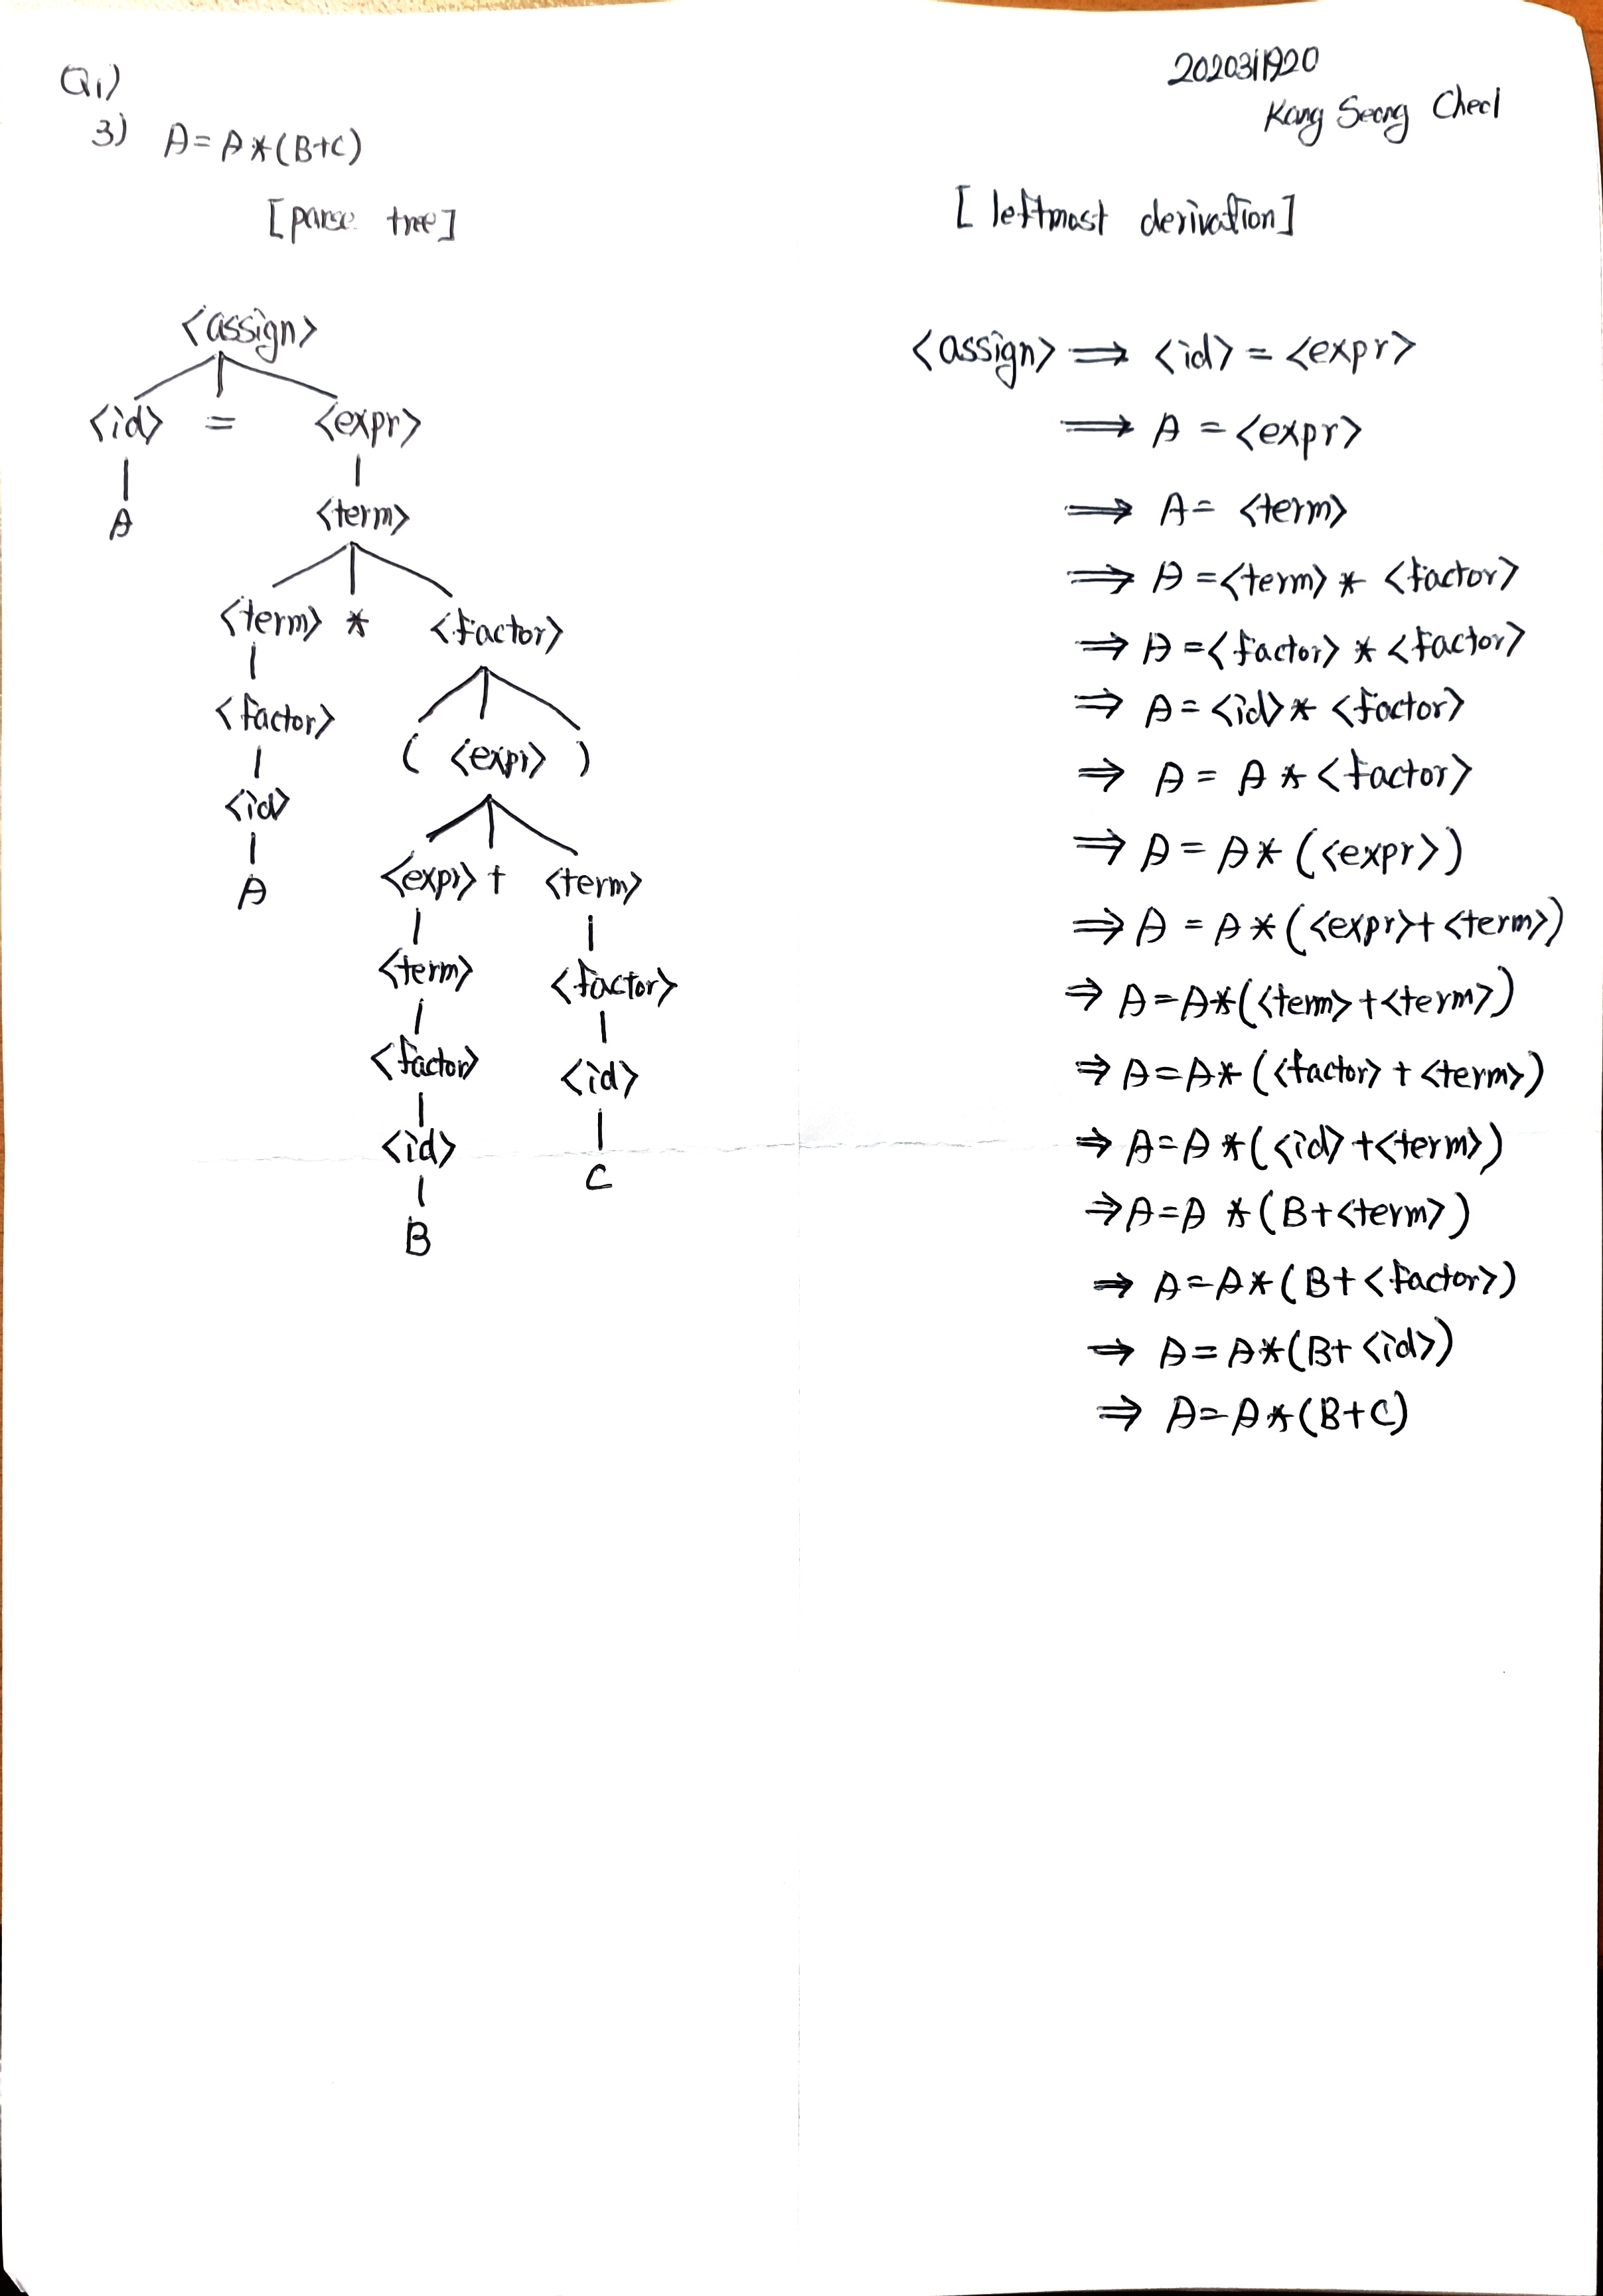 Q1)
2020311920
Kang Seong Cheol
3) A = A * (B+C)
[parse tree]
[leftmost derivation]
<assign>
<id> = <expr>
A
<term>
<term> * <factor>
<factor>
( <expr> )
<id>
A
<expr> + <term>
<term>
<factor>
<factor>
<id>
<id>
C
B
<assign> ⇒ <id> = <expr>
⇒ A = <expr>
⇒ A = <term>
⇒ A = <term> * <factor>
⇒ A = <factor> * <factor>
⇒ A = <id> * <factor>
⇒ A = A * <factor>
⇒ A = A * (<expr>)
⇒ A = A * (<expr>+<term>)
⇒ A = A * (<term>+<term>)
⇒ A = A * (<factor>+<term>)
⇒ A = A * (<id>+<term>)
⇒ A = A * (B+<term>)
⇒ A = A * (B+<factor>)
⇒ A = A * (B+<id>)
⇒ A = A * (B+C)